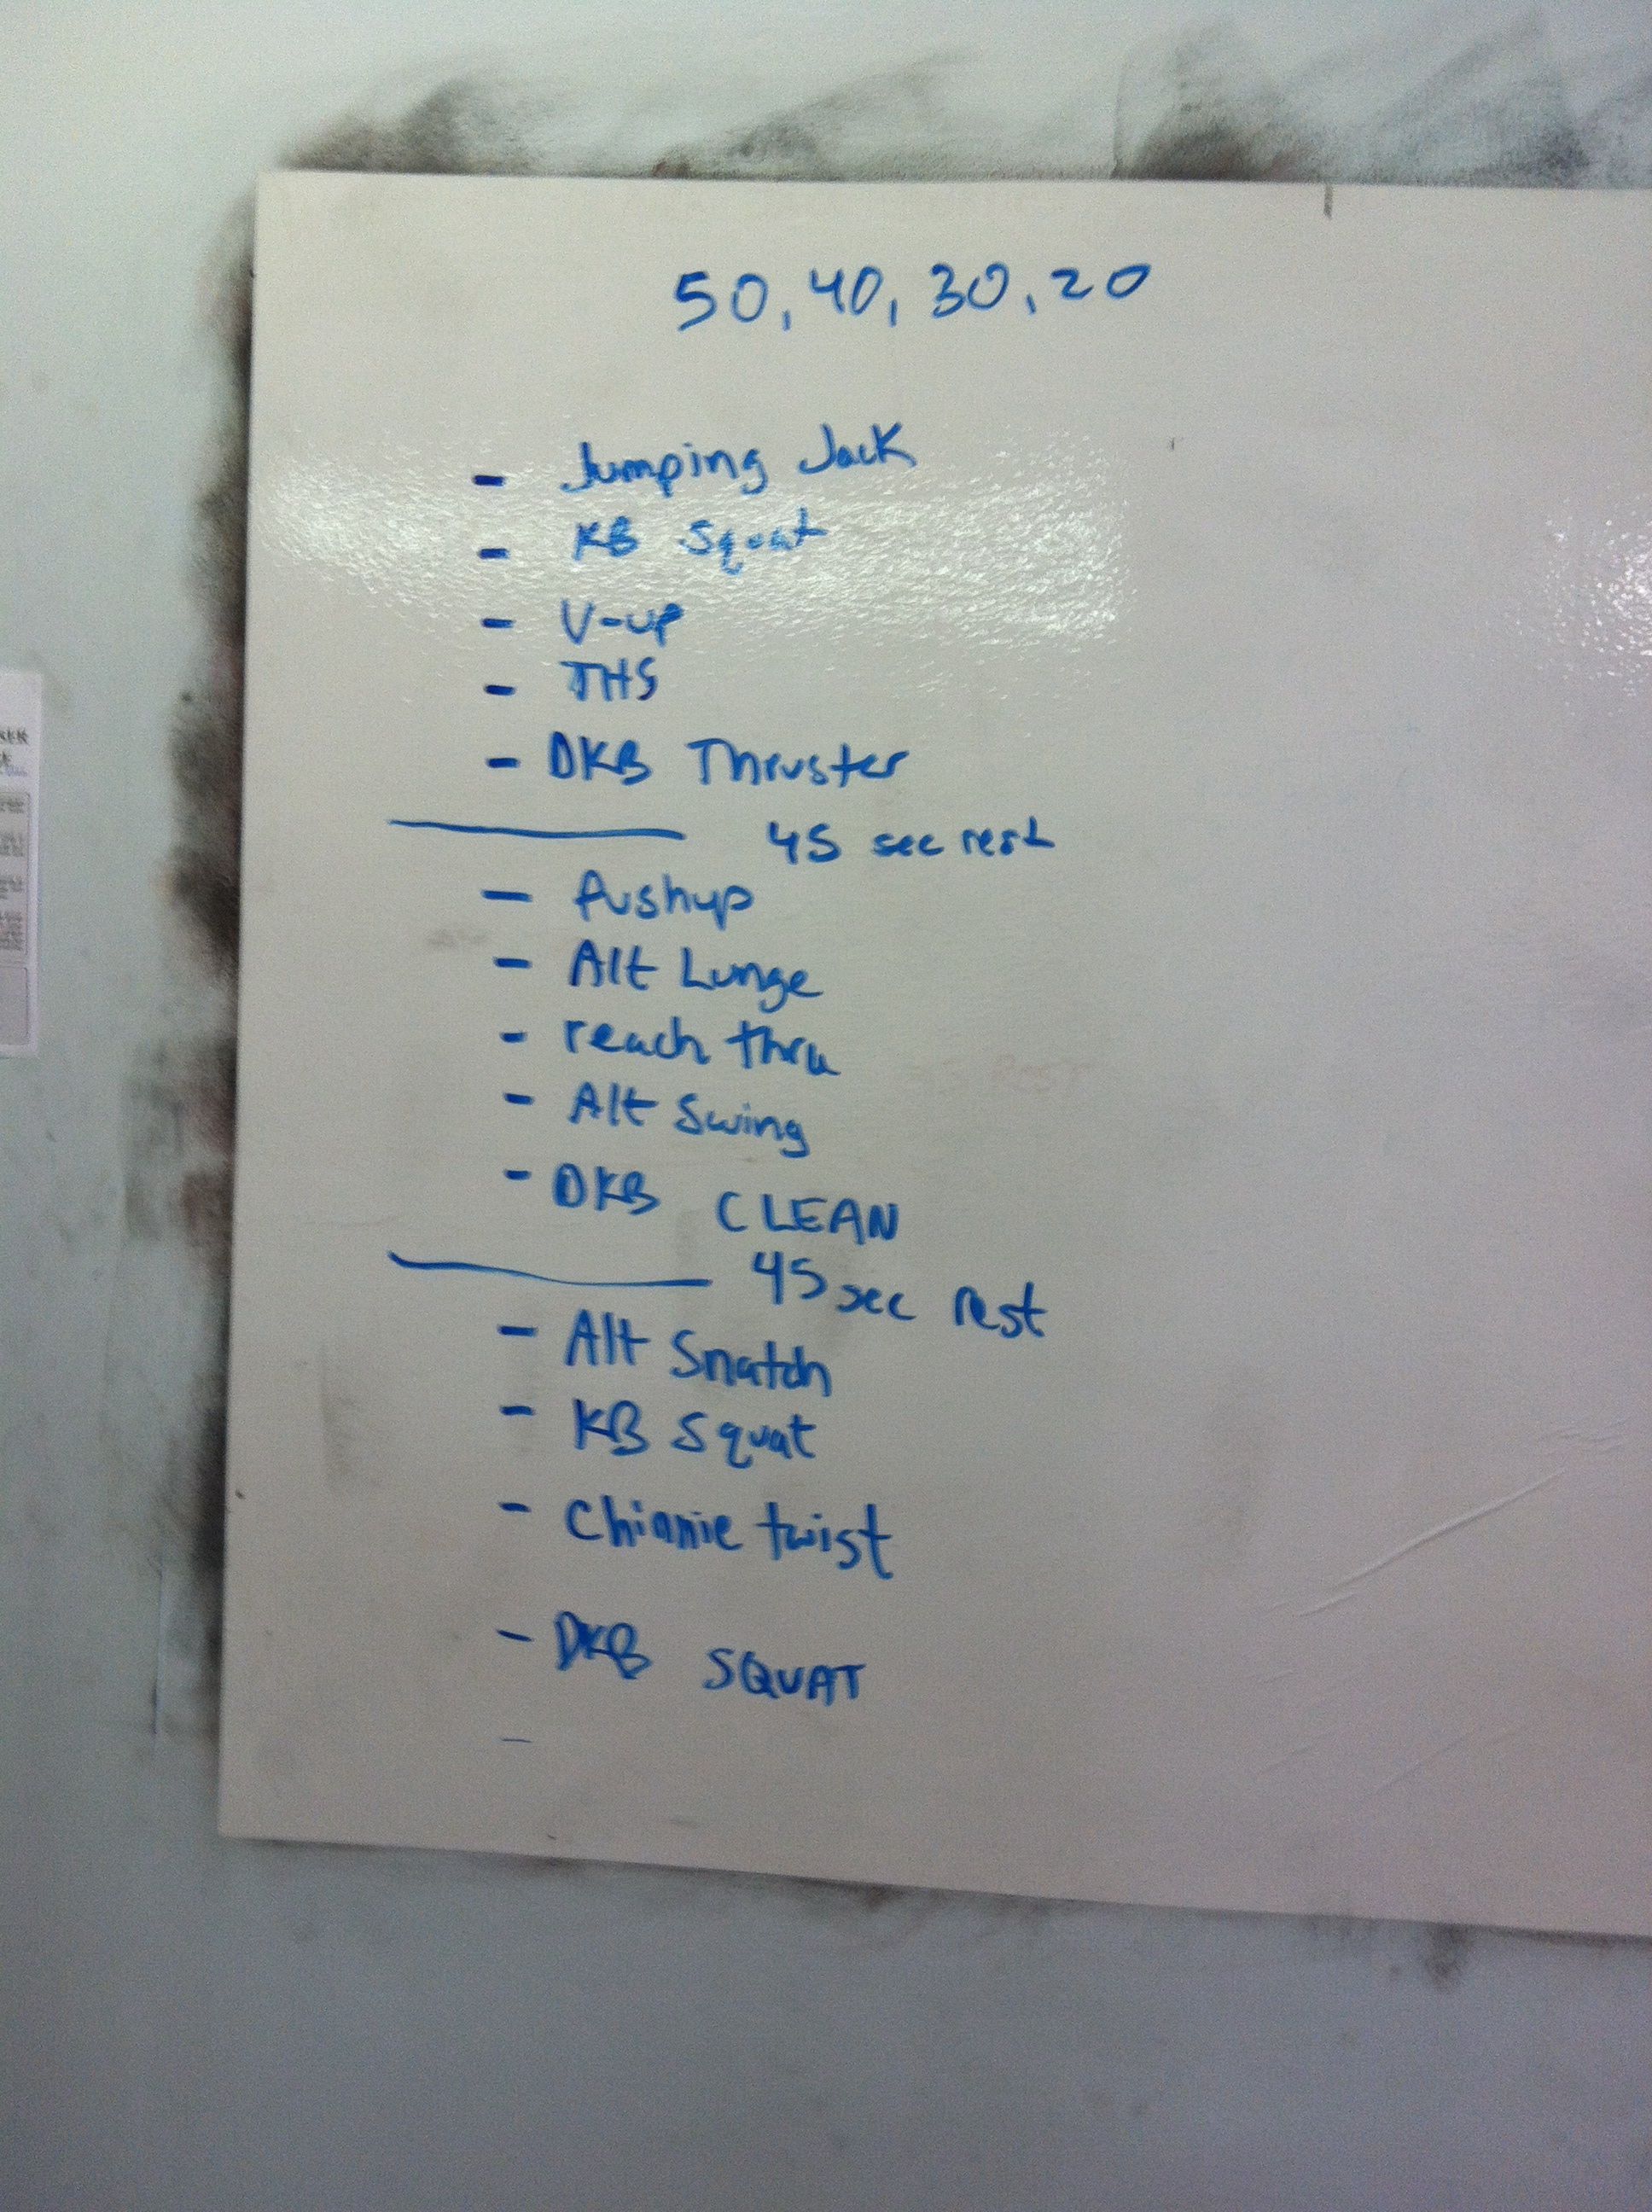 50, 40, 30, 20
- Jumping Jack
- KB Squat
- V-up
- THS
- DKB Thruster
45 sec rest
- Pushup
- Alt Lunge
- reach thru
- Alt Swing
- DKB CLEAN
45 sec rest
- Alt Snatch
- KB Squat
- Chinnie twist
- DKB SQUAT
-